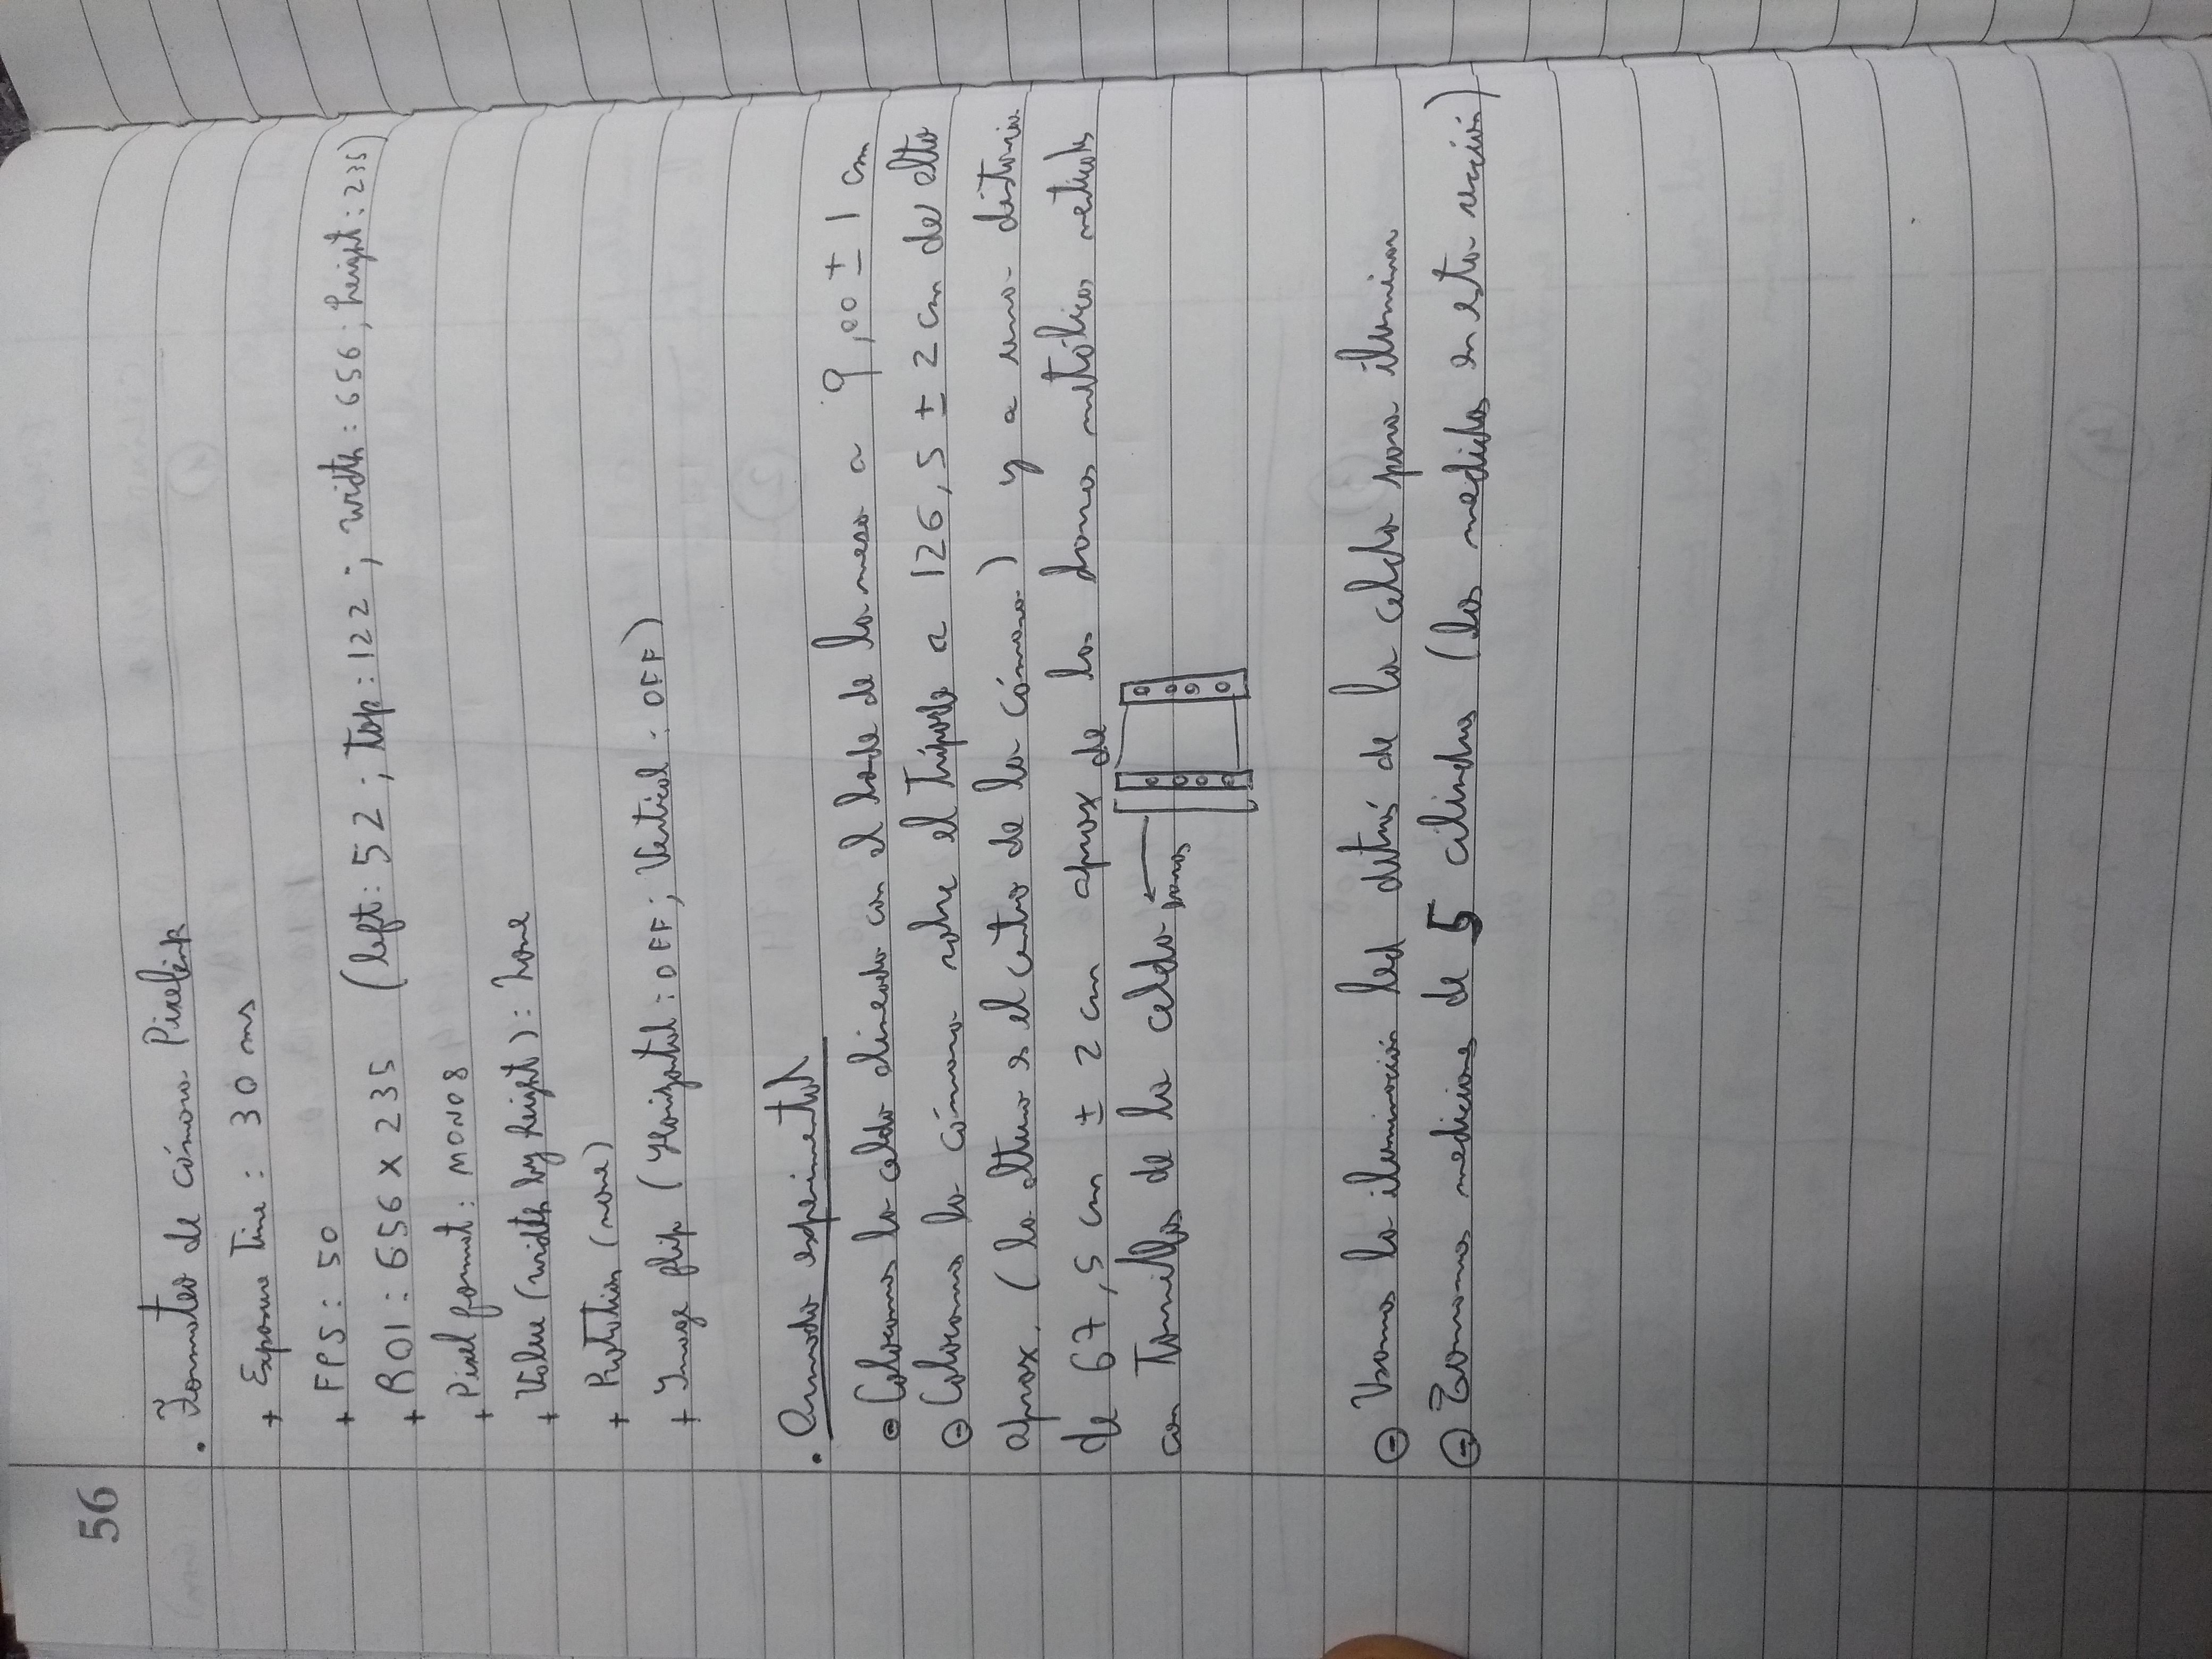 56
. Formateo de cámara Pixelink
+ Exposure Time : 30 ms
+ FPS : 50
+ ROI : 656 x 235 (left: 52 ; Top : 122 ; width : 656 ; height : 235)
+ Pixel format : MONO8
+ Value (width by height) : none
+ Rotation (none)
+ Image flip (Horizontal : OFF ; Vertical : OFF)
. Armado experimental
⊖ Colocamos la celda alineada con el borde de la mesa a 9,00 ± 1 cm
⊖ Colocamos la cámara sobre el Trípode a 126,5 ± 2 cm de alto
aprox. (la altura es el centro de la cámara) y a una distancia
de 67,5 cm ± 2 cm aprox de las barras metálicas verticales
con Tornillos de la celda
barras
⊖ Usamos la iluminación led detrás de la celda para iluminar
⊖ Tomamos mediciones de 5 cilindros (las medidas en esta sección)